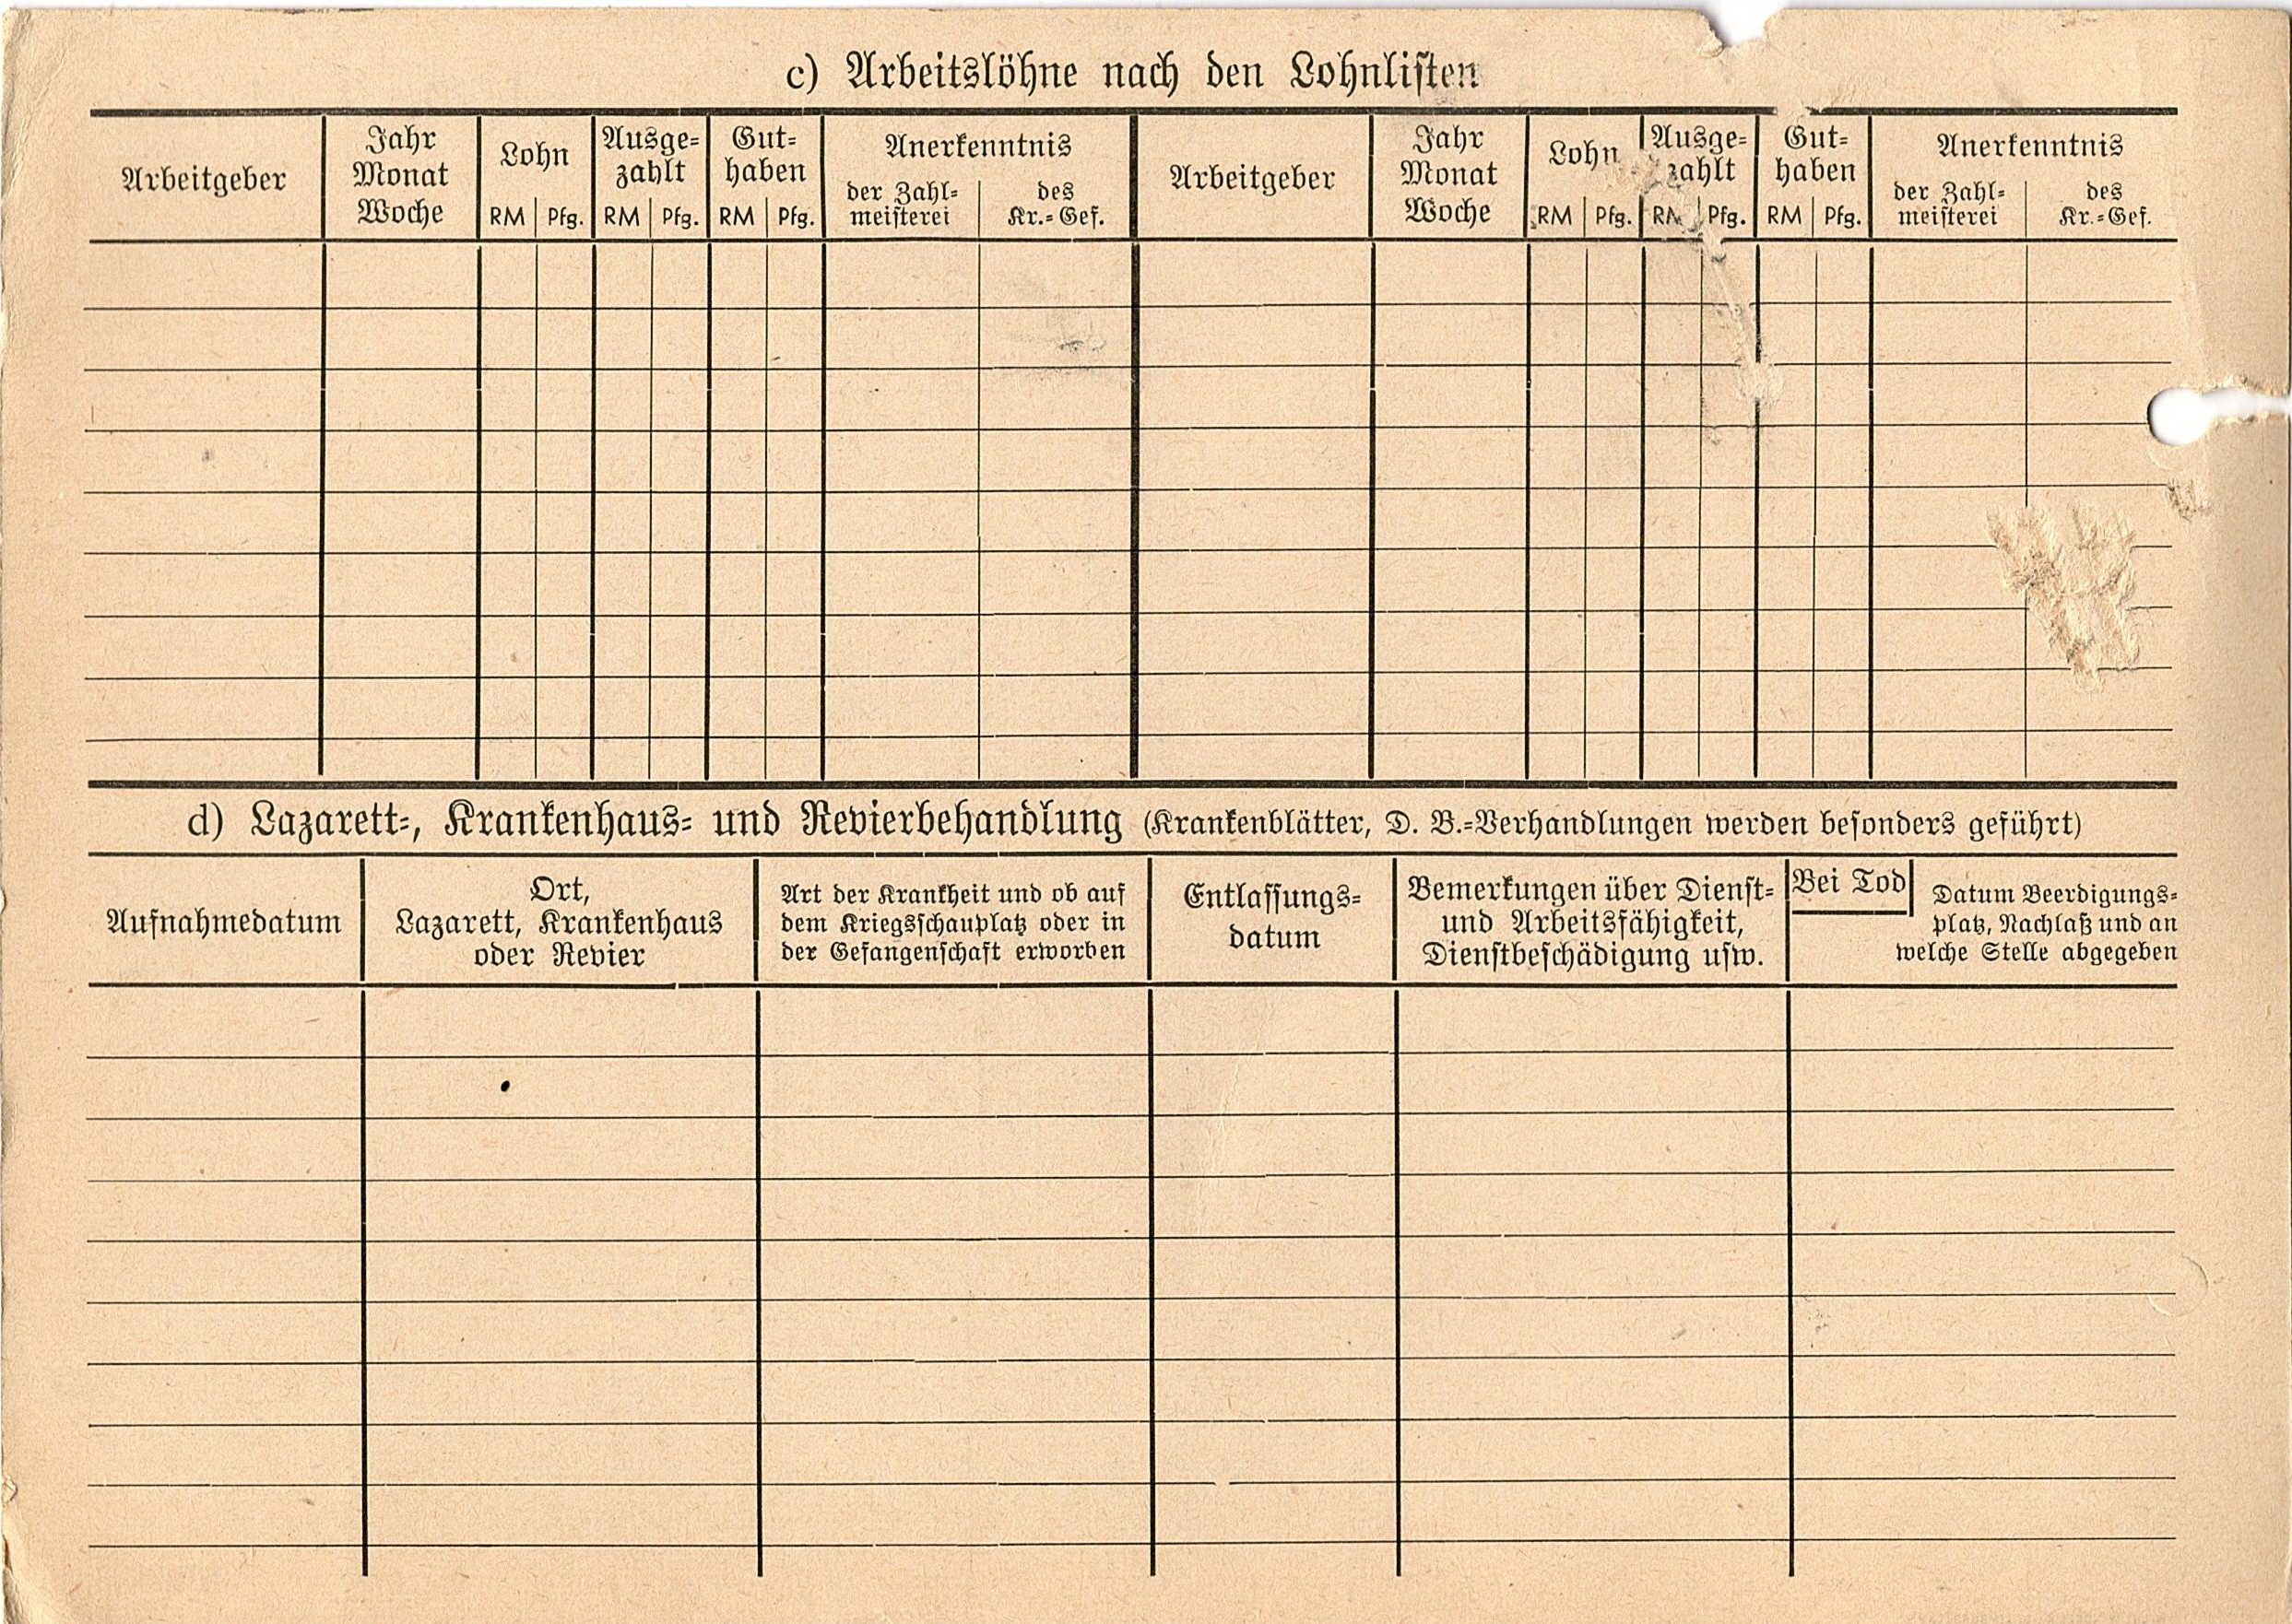 c) Arbeitslöhne nach den Lohnlisten
Arbeitgeber
Jahr
Monat
Woche
Lohn
RM Pfg.
Ausge-
zahlt
RM Pfg.
Gut-
haben
RM Pfg.
Anerkenntnis
der Zahl-
meisterei
des
Kr.-Gef.
Arbeitgeber
Jahr
Monat
Woche
Lohn
RM Pfg.
Ausge-
zahlt
RM Pfg.
Gut-
haben
RM Pfg.
Anerkenntnis
der Zahl-
meisterei
des
Kr.-Gef.
d) Lazarett-, Krankenhaus- und Revierbehandlung (Krankenblätter, D. B.-Verhandlungen werden besonders geführt)
Aufnahmedatum
Ort,
Lazarett, Krankenhaus
oder Revier
Art der Krankheit und ob auf
dem Kriegsschauplatz oder in
der Gefangenschaft erworben
Entlassungs-
datum
Bemerkungen über Dienst-
und Arbeitsfähigkeit,
Dienstbeschädigung usw.
Bei Tod
Datum Beerdigungs-
platz, Nachlaß und an
welche Stelle abgegeben